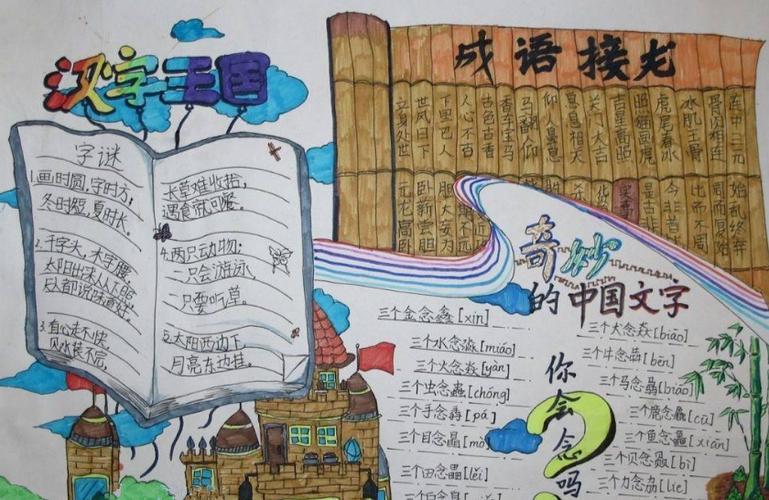 汉字王国
字谜
1.画时圆,写时方;
冬时短,夏时长。
2.千字头,木字腰,
3.有心走不快,
见水装不完,
长草难收拾,
遇食就可餐。
4.两只动物:
一只会游泳,
5.太阳西边下,
月亮东边挂。
成语接龙
连中三元
骨肉相连
冰肌玉骨
虎尾春冰
照猫画虎
吉星高照
关门大吉
息息相关
仰人鼻息
香车宝马
古色古香
人心不古
下里巴人
世风日下
立身处世
始乱终弃
周而复始
比而不周
今非昔比
胆大妄为
卧薪尝胆
元龙高卧
奇妙
的中国文字
你会念吗?
三个金念鑫[xīn]
三个水念淼[miǎo]
三个火念焱[yàn]
三个虫念蟲[chóng]
三个手念掱[pá]
三个目念瞐[mò]
三个田念畾[lěi]
三个犬念猋[biāo]
三个牛念犇[bēn]
三个马念骉[biāo]
三个鹿念麤[cū]
三个鱼念鱻[xiān]
三个贝念赑[bì]
三个力念劦[lie]